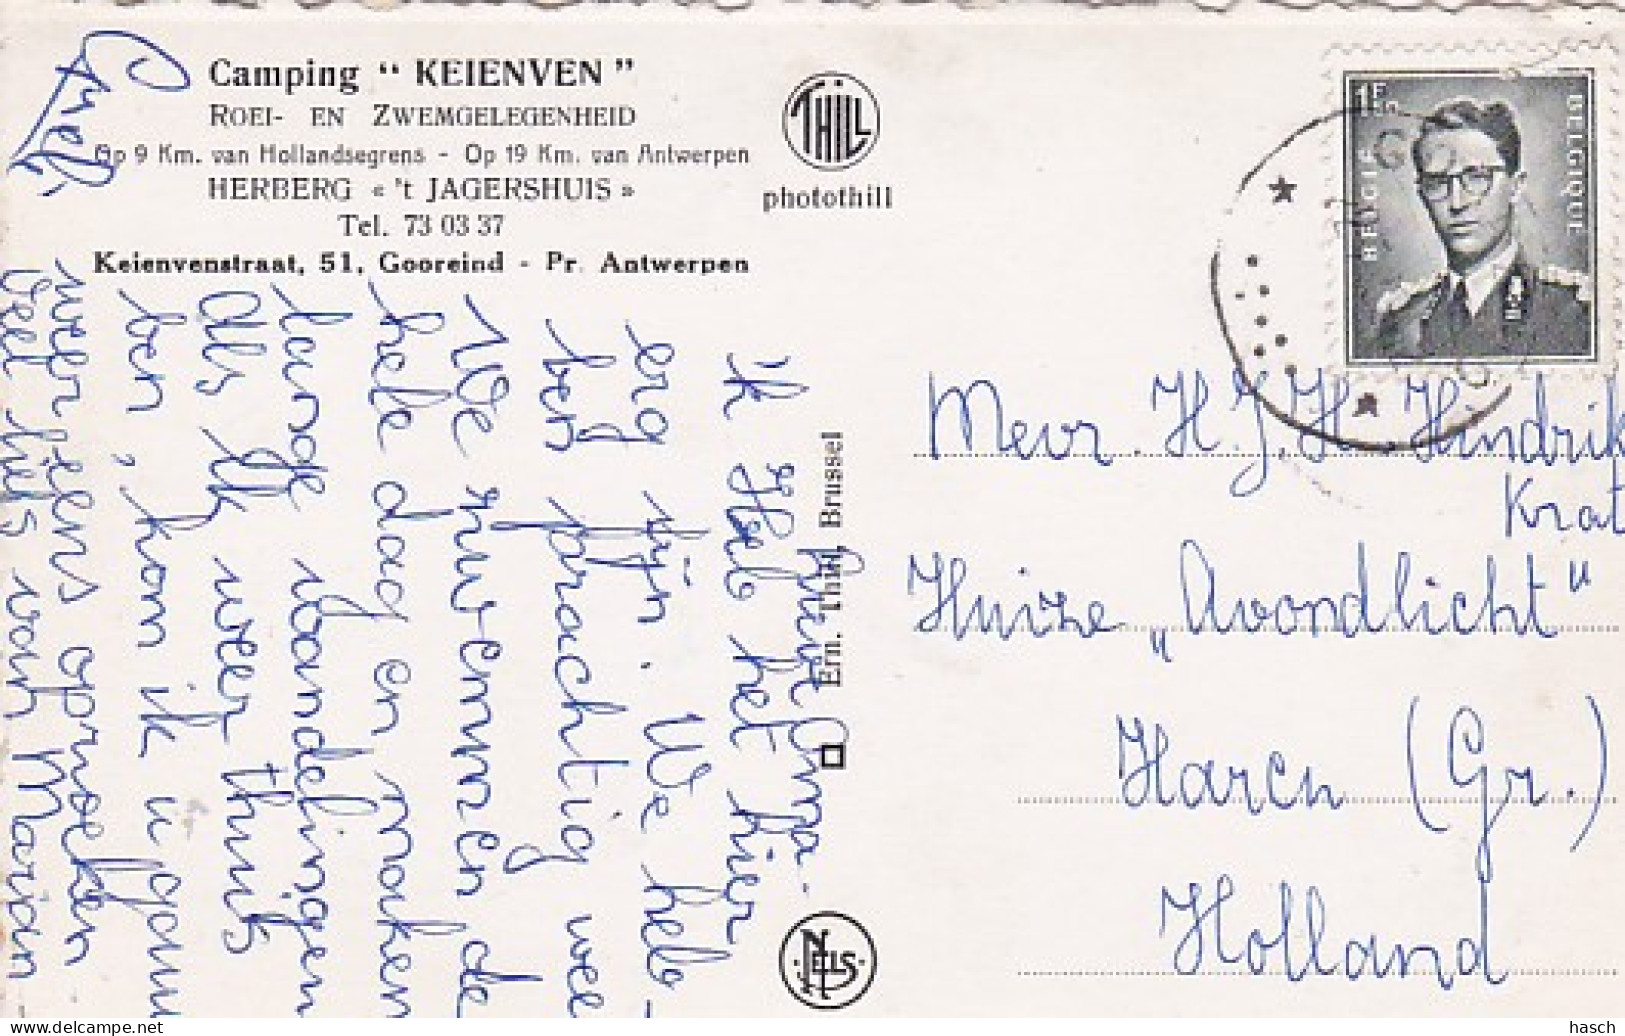 Camping “ KEIENVEN ”
ROEI- EN ZWEMGELEGENHEID
Op 9 Km. van Hollandsegrens - Op 19 Km. van Antwerpen
HERBERG « 't JAGERSHUIS »
Tel. 73 03 37
Keienvenstraat, 51, Gooreind - Pr. Antwerpen
THILL
photothill
Ern. Thill, Brussel
NELS
1F
BELGIE
BELGIQUE
Mevr. H. J. H. Hindrik
Krat
Huize „Avondlicht"
Haren (Gr.)
Holland
Oma.
ik Heb het hier
erg fijn. We heb-
ben prachtig wee
We zwemmen de
hele dag en maken
lange wandelingen
Als ik weer thuis
ben, kom ik u gauw
weer eens opzoeken
Veel liefs van Marian
hasch